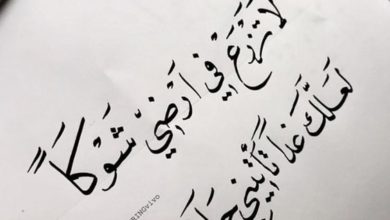 لَا تَزْرَعْ فِي أَرْضِيِّ شَوْكَاً
لَعَلَّكَ غَداً تَأْتِيْنِي